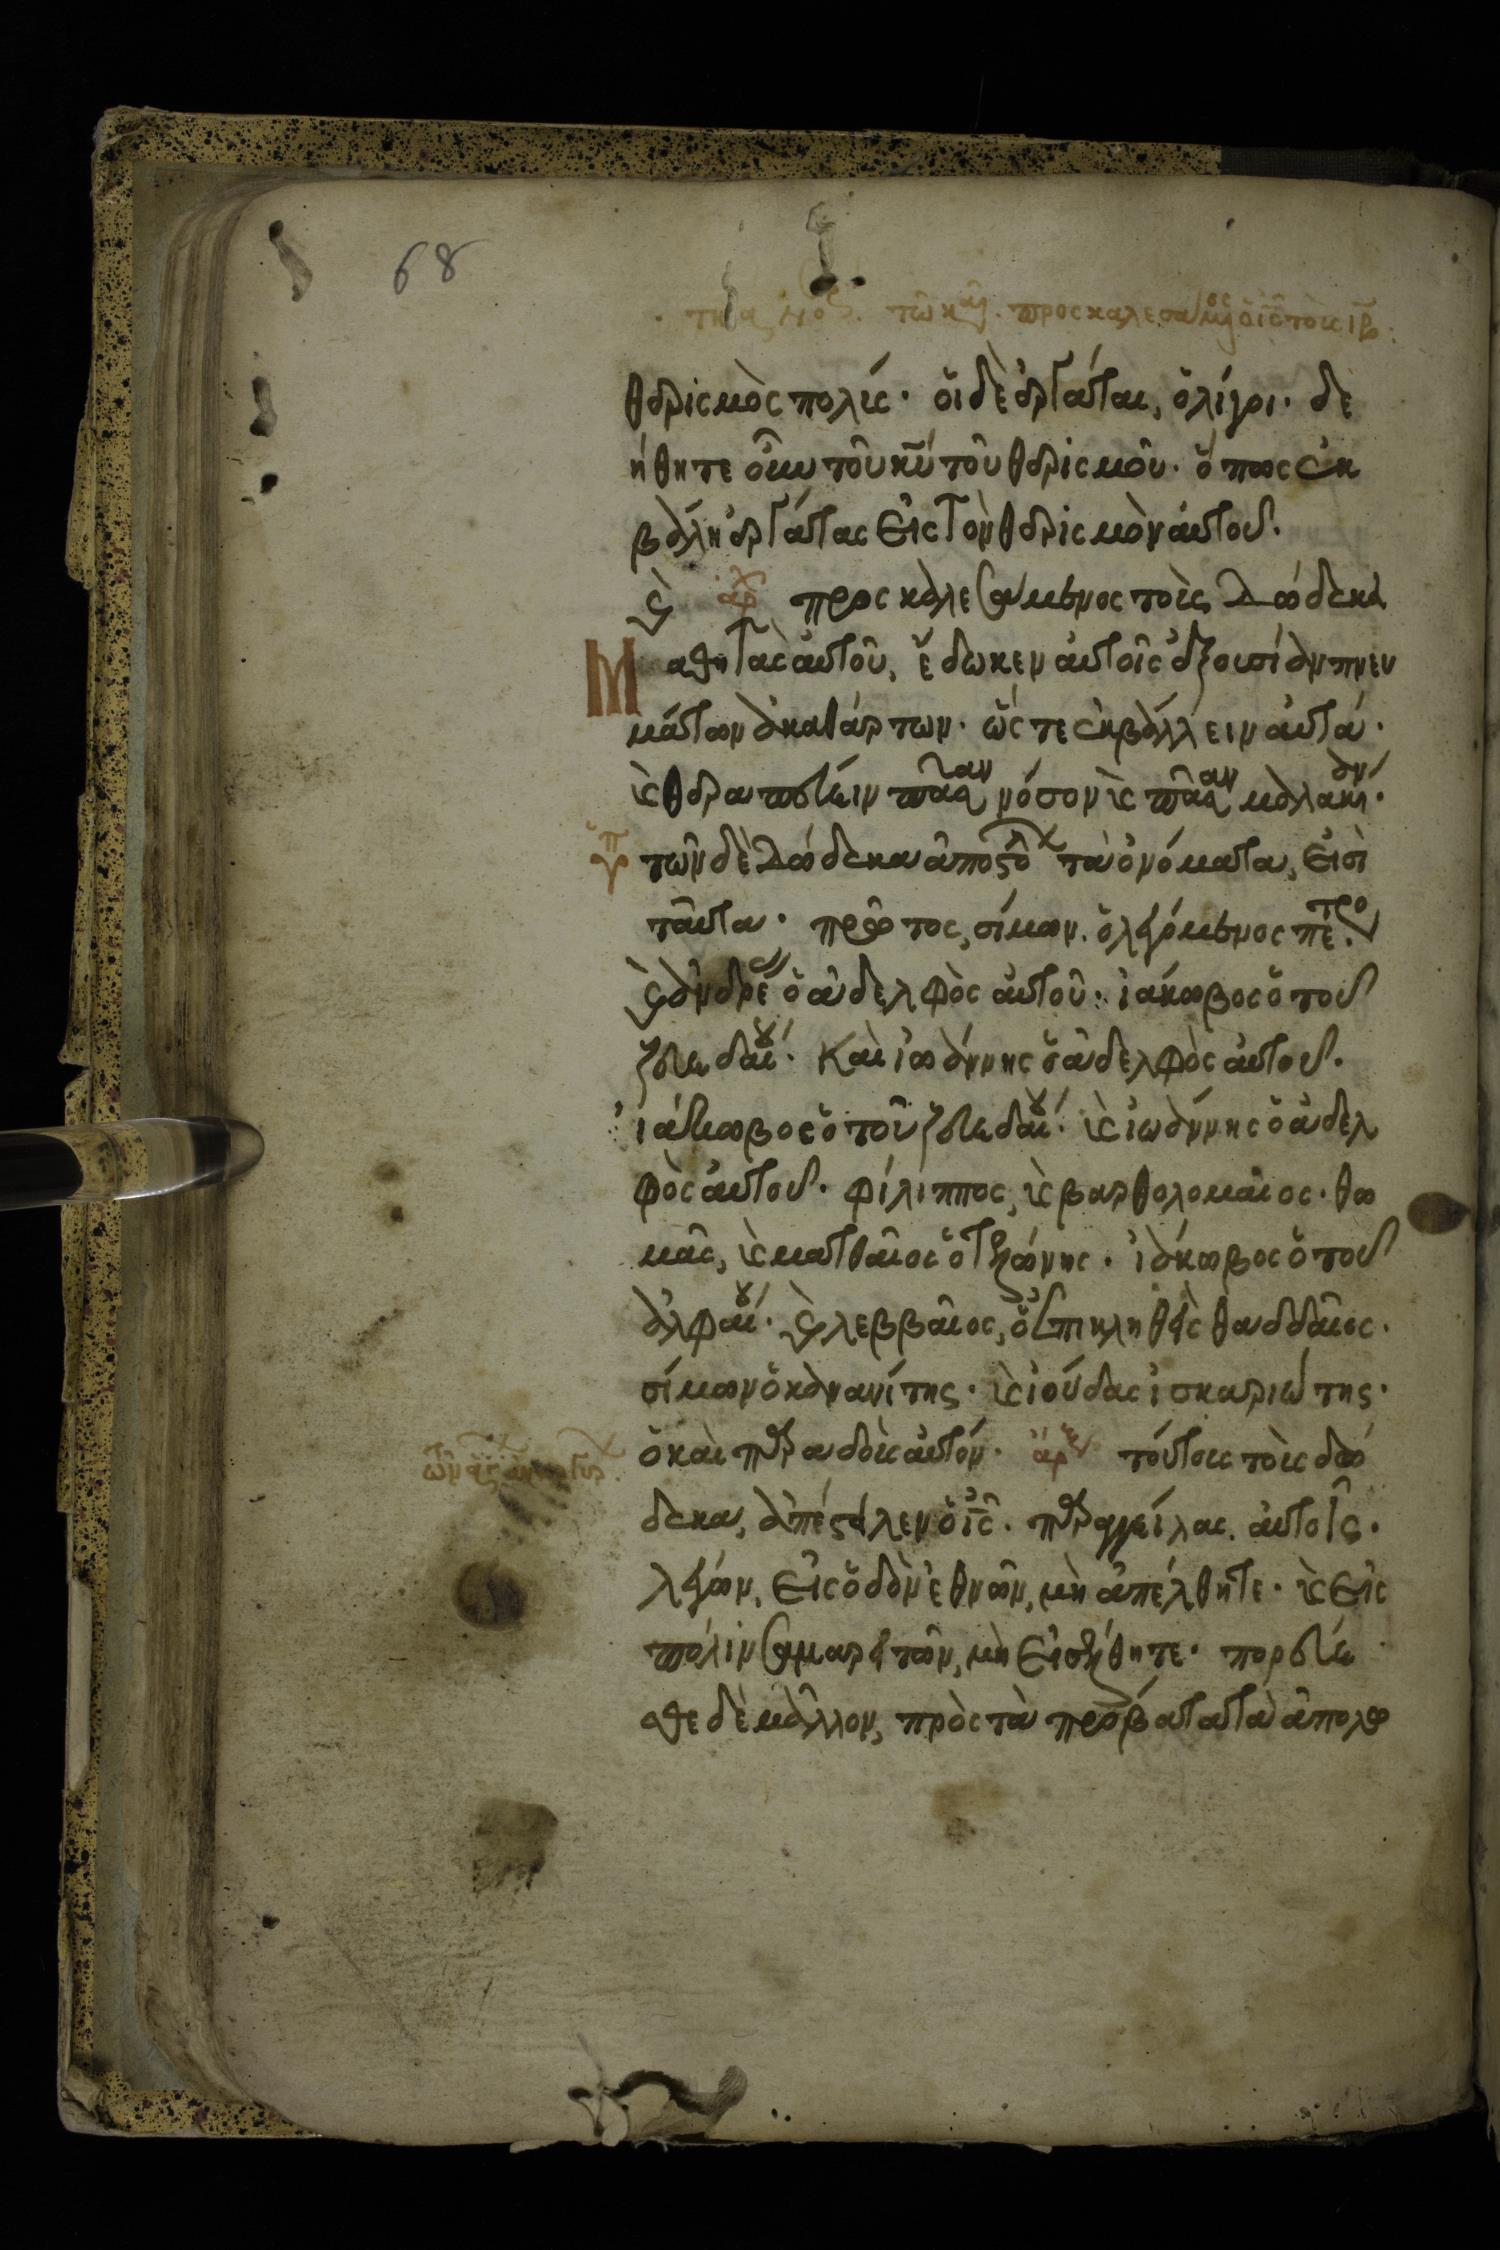 68
τῶ κ προσκαλεσάμενος ὁ ις τοὺς ιβ
θερισμὸς πολύς· οἱ δὲ ἐργάται, ὀλίγοι· δε
ήθητε οὖν τοῦ κυ τοῦ θερισμοῦ· ὅπως ἐκ
βάλη ἐργάτας εἰς τὸν θερισμὸν αὐτοῦ.
ϗ αρχ προσκαλεσάμενος τοὺς δώδεκα
Μαθητὰς αὐτοῦ, ἔδωκεν αὐτοῖς ἐξουσίαν πνευ
μάτων ἀκαθάρτων· ὥστε ἐκβάλλειν αὐτά·
ϗ θεραπεύειν πᾶσαν νόσον ϗ πᾶσαν μαλακίαν·
τῶν δὲ δώδεκα ἀποστόλων τὰ ὀνόματα, εἰσὶ
ταῦτα· πρῶτος, σίμων ὁ λεγόμενος πέτρος·
ϗ ἀνδρέας ὁ ἀδελφὸς αὐτοῦ· ἰάκωβος ὁ τοῦ
ζεβεδαίου· Καὶ ἰωάννης ὁ ἀδελφὸς αὐτοῦ.
ἰάκωβος ὁ τοῦ ζεβεδαίου· ϗ ἰωάννης ὁ ἀδελ
φὸς αὐτοῦ· φίλιππος, ϗ βαρθολομαῖος· θω
μᾶς, ϗ ματθαῖος ὁ τελώνης· ἰάκωβος ὁ τοῦ
ἀλφαίου· ϗ λεββαῖος, ὁ ἐπικληθεὶς θαδδαῖος·
σίμων ὁ κανανίτης· ϗ ἰούδας ἰσκαριώτης·
ὁ καὶ παραδοὺς αὐτόν· αρχ τούτους τοὺς δώ
δεκα, ἀπέστειλεν ὁ ις· παραγγείλας αὐτοῖς·
λέγων, εἰς ὁδὸν ἐθνῶν, μὴ ἀπέλθητε· ϗ εἰς
πόλιν σαμαρειτῶν, μὴ εἰσέλθητε· πορεύε
σθε δὲ μᾶλλον, πρὸς τὰ πρόβατα τὰ ἀπολω